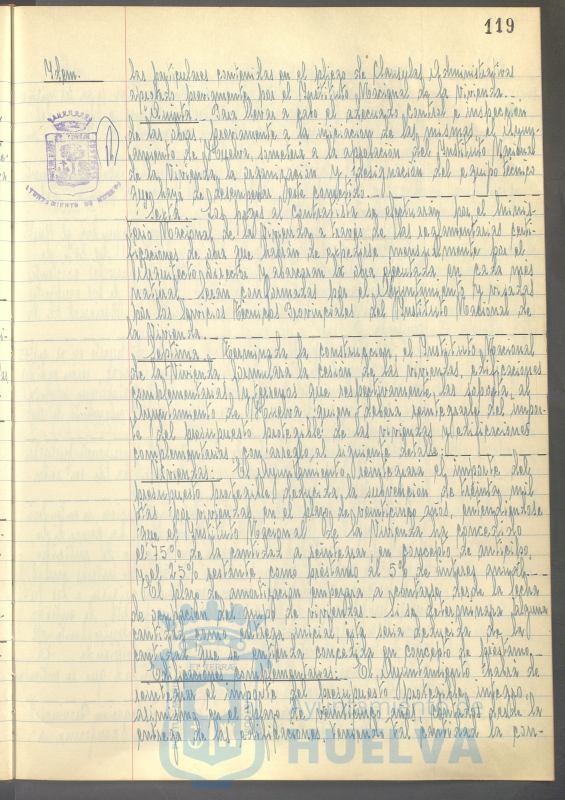 119
Idem.
las particulares contenidas en el pliego de Clausulas Administrativas
aprobado previamente por el Instituto Nacional de la Vivienda.
Quinta.- Para llevar a cabo el adecuado control e inspección
de las obras, previamente a la iniciación de las mismas, el Ayun-
tamiento de Huelva, someterá a la aprobación del Instituto Nacional
de la Vivienda, la organización y designación del equipo técnico
que haya de desempeñar este cometido.
Sexta.- Los pagos al contratista se efectuarán por el
Nacional de la Vivienda a través de las reglamentarias certi-
ficaciones de obra que habrán de expedirse mensualmente por el
Arquitecto director y abarcarán la obra ejecutada en cada mes
natural. Serán conformadas por el Ayuntamiento y visadas
por los Servicios Técnicos Provinciales del Instituto Nacional de
la Vivienda.
Septima.- Terminada la construcción, el Instituto Nacional
de la Vivienda, formulará la cesión de las viviendas, edificaciones
complementarias y terrenos que respectivamente las soporta, al
Ayuntamiento de Huelva, quien deberá reintegrarse del impor-
te del presupuesto protegible de las viviendas y edificaciones
complementarias, con arreglo al siguiente detalle:
Viviendas: El Ayuntamiento, reintegrará el importe del
presupuesto protegible deducida, la subvención de treinta mil
ptas por viviendas, en el plazo de veinticinco años, entendiendose
que el Instituto Nacional de la Vivienda ha concedido
el 75% de la cantidad a reintegrar, en concepto de anticipo,
y el 25% restante como préstamo al 5% de interes anual.
El plazo de amortización empezará a contarse desde la fecha
de ocupación del grupo de viviendas. Si se determinara alguna
cantidad como entrega inicial, esta sería deducida de la
cantidad que se entienda concedida en concepto de préstamo.
Edificaciones complementarias: El Ayuntamiento habrá de
reintegrar importe del presupuesto protegible integro,
en el plazo de veinticinco años, contados desde la
entrega de las edificaciones, teniendo tal cantidad la con-
AYUNTAMIENTO DE HUELVA
Ayuntamiento de
HUELVA